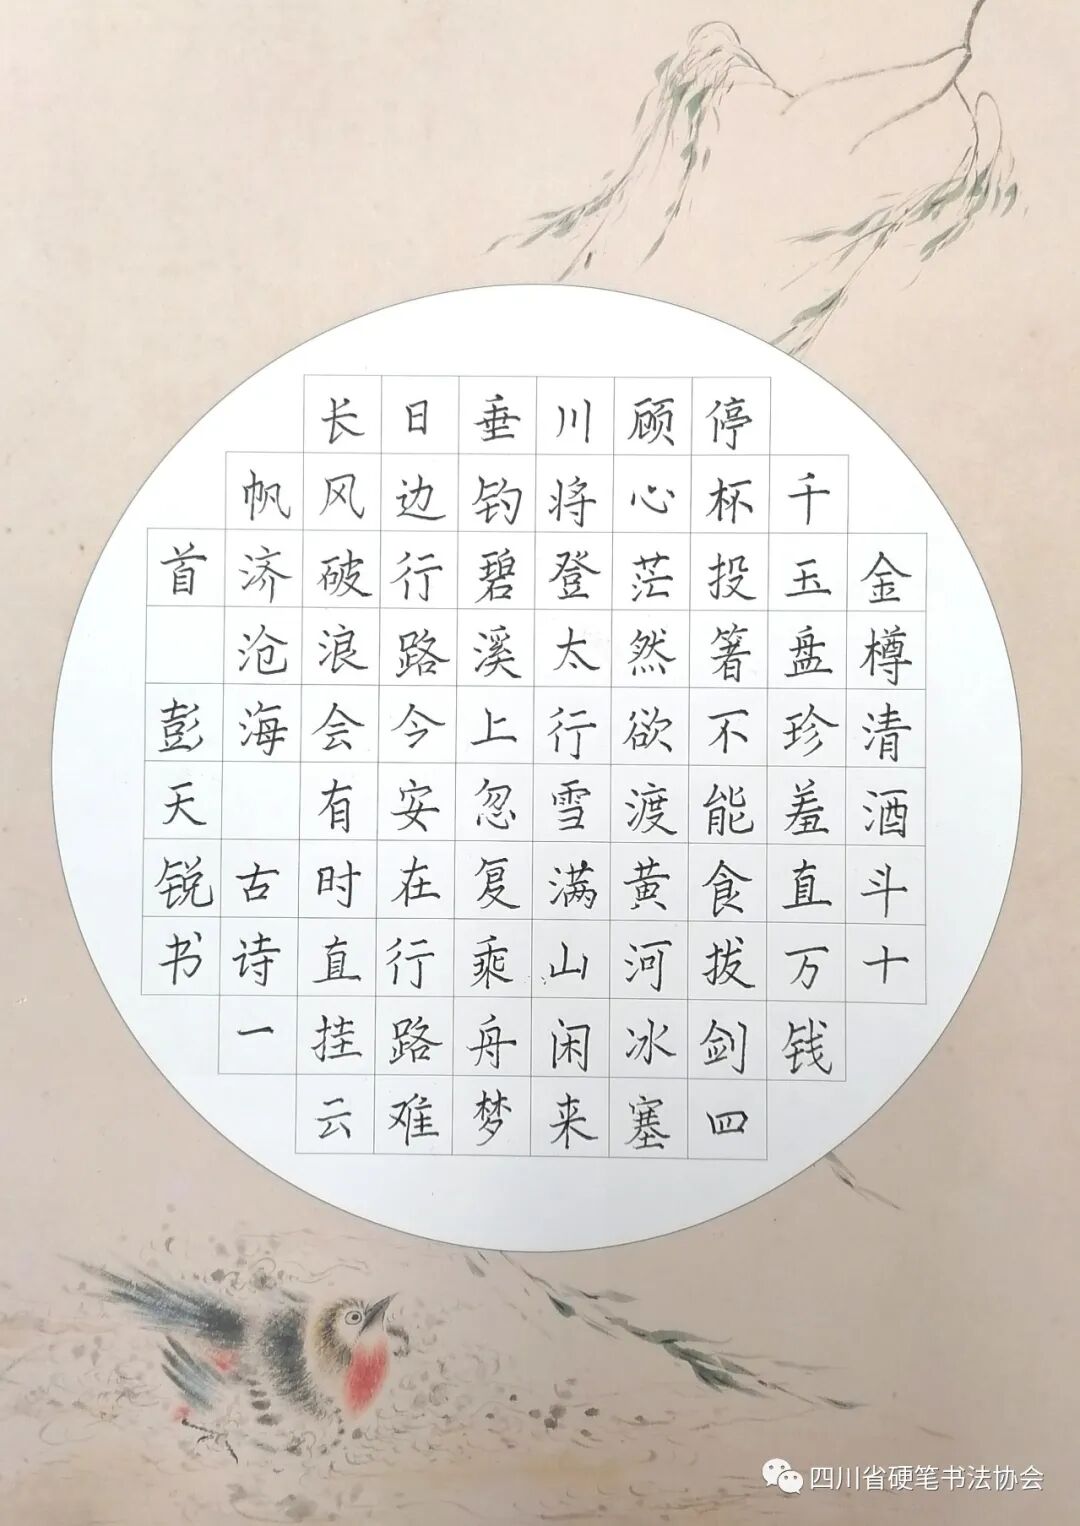 金樽清酒斗十
千玉盘珍羞直万钱
停杯投箸不能食拔剑四
顾心茫然欲渡黄河冰塞
川将登太行雪满山闲来
垂钓碧溪上忽复乘舟梦
日边行路今安在行路难
长风破浪会有时直挂云
帆济沧海 古诗一
首 彭天锐书
四川省硬笔书法协会